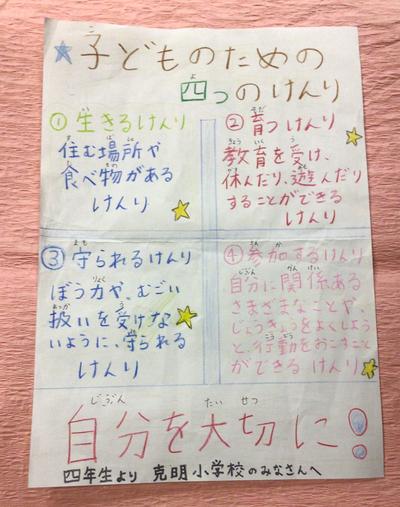 ★子どものための
四つのけんり
①生きるけんり
住む場所や
食べ物がある
けんり
②育つけんり
教育を受け、
休んだり、遊んだり
することができる
けんり
③守られるけんり
ぼう力や、むごい
扱いを受けな
いように、守られる
けんり
④参加するけんり
自分に関係ある
さまざまなことや、
じょうきょうをよくしよう
と、行動をおこすこと
ができる けんり
自分を大切に!
四年生より 克明小学校のみなさんへ